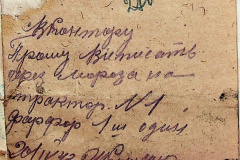 В контору
Прошу выписать
через Мороза на
трактор N 1
фарфор 1 ш один